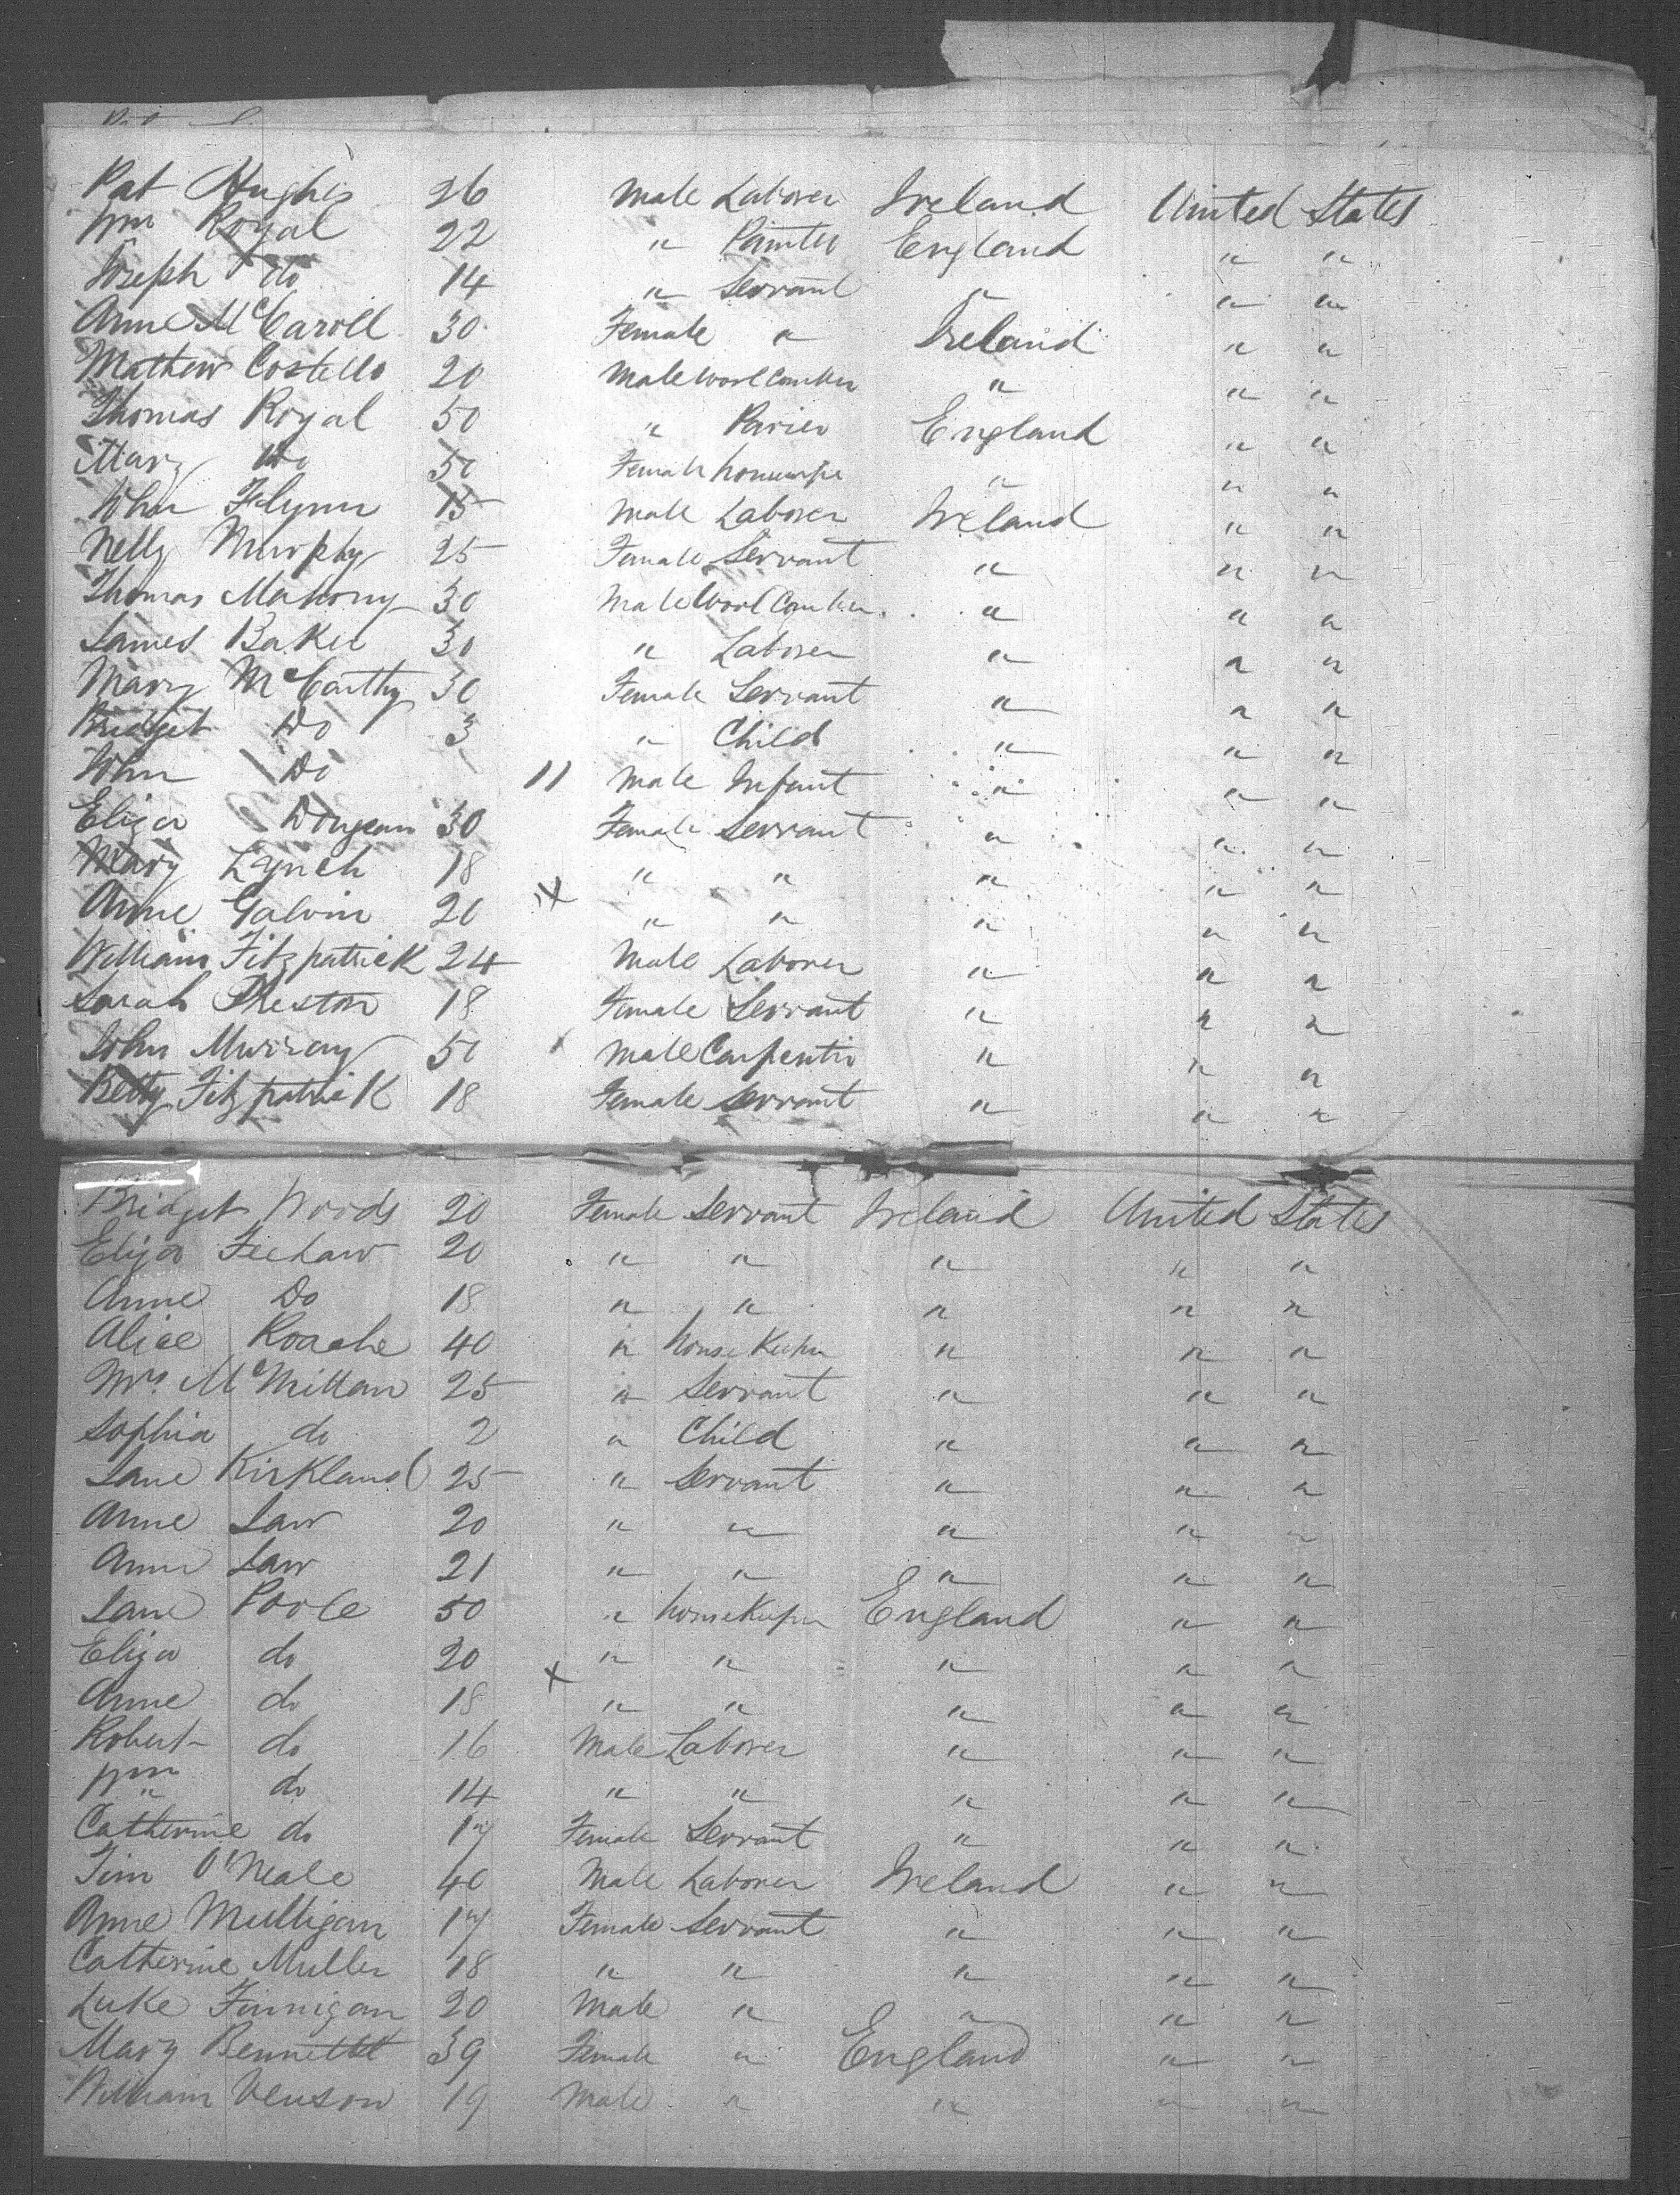 Pat Hughes 26 Male Laborer Ireland United States
Wm Royal 22 " Painter England " "
Joseph do 14 " Servant " " "
Anne McCaroll 30 Female " Ireland " "
Mathew Costello 20 Male Wool Comber " " "
Thomas Royal 50 " England " "
Mary Do 50 Female housewife " " "
John Flynn 15 Male Laborer Ireland " "
Nelly Murphy 25 Female Servant " " "
Thomas Mahony 30 Male Wool Comber " " "
James Baker 30 " Laborer " " "
Mary McCarthy 30 Female Servant " " "
Bridget Do 3 " Child " " "
John Do 11 Male Infant " " "
Eliza 30 Female Servant " " "
Mary Lynch 18 " " " " "
Anne Galvin 20 " " " " "
William Fitzpatrick 24 Male Laborer " " "
Sarah Preston 18 Female Servant " " "
John Murray 50 Male Carpenter " " "
Betty Fitzpatrick 18 Female Servant " " "
Bridget Woods 20 Female Servant Ireland United States
Eliza Feehan 20 " " " " "
Anne Do 18 " " " " "
Alice Roache 40 " house Keeper " " "
Mrs McMillan 25 " Servant " " "
Sophia do 2 " Child " " "
Jane Kirkland 25 " Servant " " "
Anne Law 20 " " " " "
Ann Law 21 " " " " "
Jane Poole 50 " houseKeeper England " "
Eliza do 20 " " " " "
Anne do 18 " " " " "
Robert do 16 Male Laborer " " "
Wm do 14 " " " " "
Catherine do 17 Female Servant " " "
Tim O'Neale 40 Male Laborer Ireland " "
Anne Mulligan 17 Female Servant " " "
Catherine Muller 18 " " " " "
Luke Finnigan 20 Male " " " "
Mary Bennettt 39 Female " England " "
William Venson 19 Male " " " "